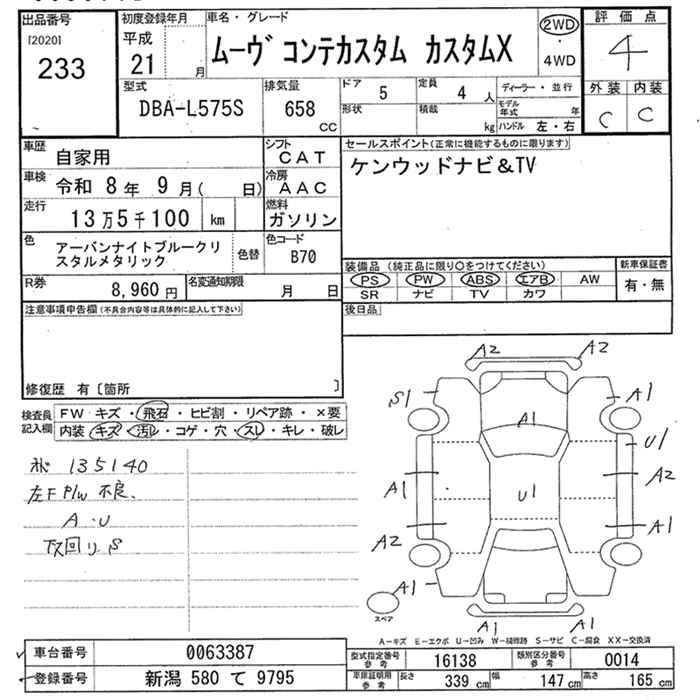 出品番号
[2020]
233
初度登録年月
平成
21 月
車名・グレード
ムーヴ コンテカスタム カスタムX
2WD
・
4WD
評価点
4
外装 内装
C C
型式
DBA-L575S
排気量
658
CC
ドア 5
形状
定員 4 人
積載 kg
ディーラー・並行
モデル年式 年
ハンドル 左・右
車歴
自家用
シフト
CAT
車検
令和 8年 9月( 日)
冷房
AAC
走行
13万5千100 km
燃料
ガソリン
色
アーバンナイトブルークリ
スタルメタリック
色替
色コード
B70
R券
8,960 円
名変通知期限
月 日
セールスポイント(正常に機能するものに限ります)
ケンウッドナビ&TV
装備品 (純正品に限り○をつけてください)
PS PW ABS エアB AW
SR ナビ TV カワ
新車保証書
有・無
後日品
注意事項申告欄(不具合内容等は具体的に記入して下さい)
修復歴 有〔箇所 〕
検査員
記入欄
FW キズ・飛石・ヒビ割・リペア跡・×要
内装 キズ・汚レ・コゲ・穴・スレ・キレ・破レ
135140
左F P/W 不良.
A・U
下回りS
A2 A2
S1 A1
A1
U1
A1 U1 A2
A2 A1
A1
スペア
A1 A1
A-キズ E-エクボ U-凹み W-補修跡 S-サビ C-腐食 XX-交換済
車台番号
0063387
登録番号
新潟 580 て 9795
型式指定番号
参考
16138
類別区分番号
参考
0014
車庫証明用
参考
長さ 339 cm
幅 147 cm
高さ 165 cm